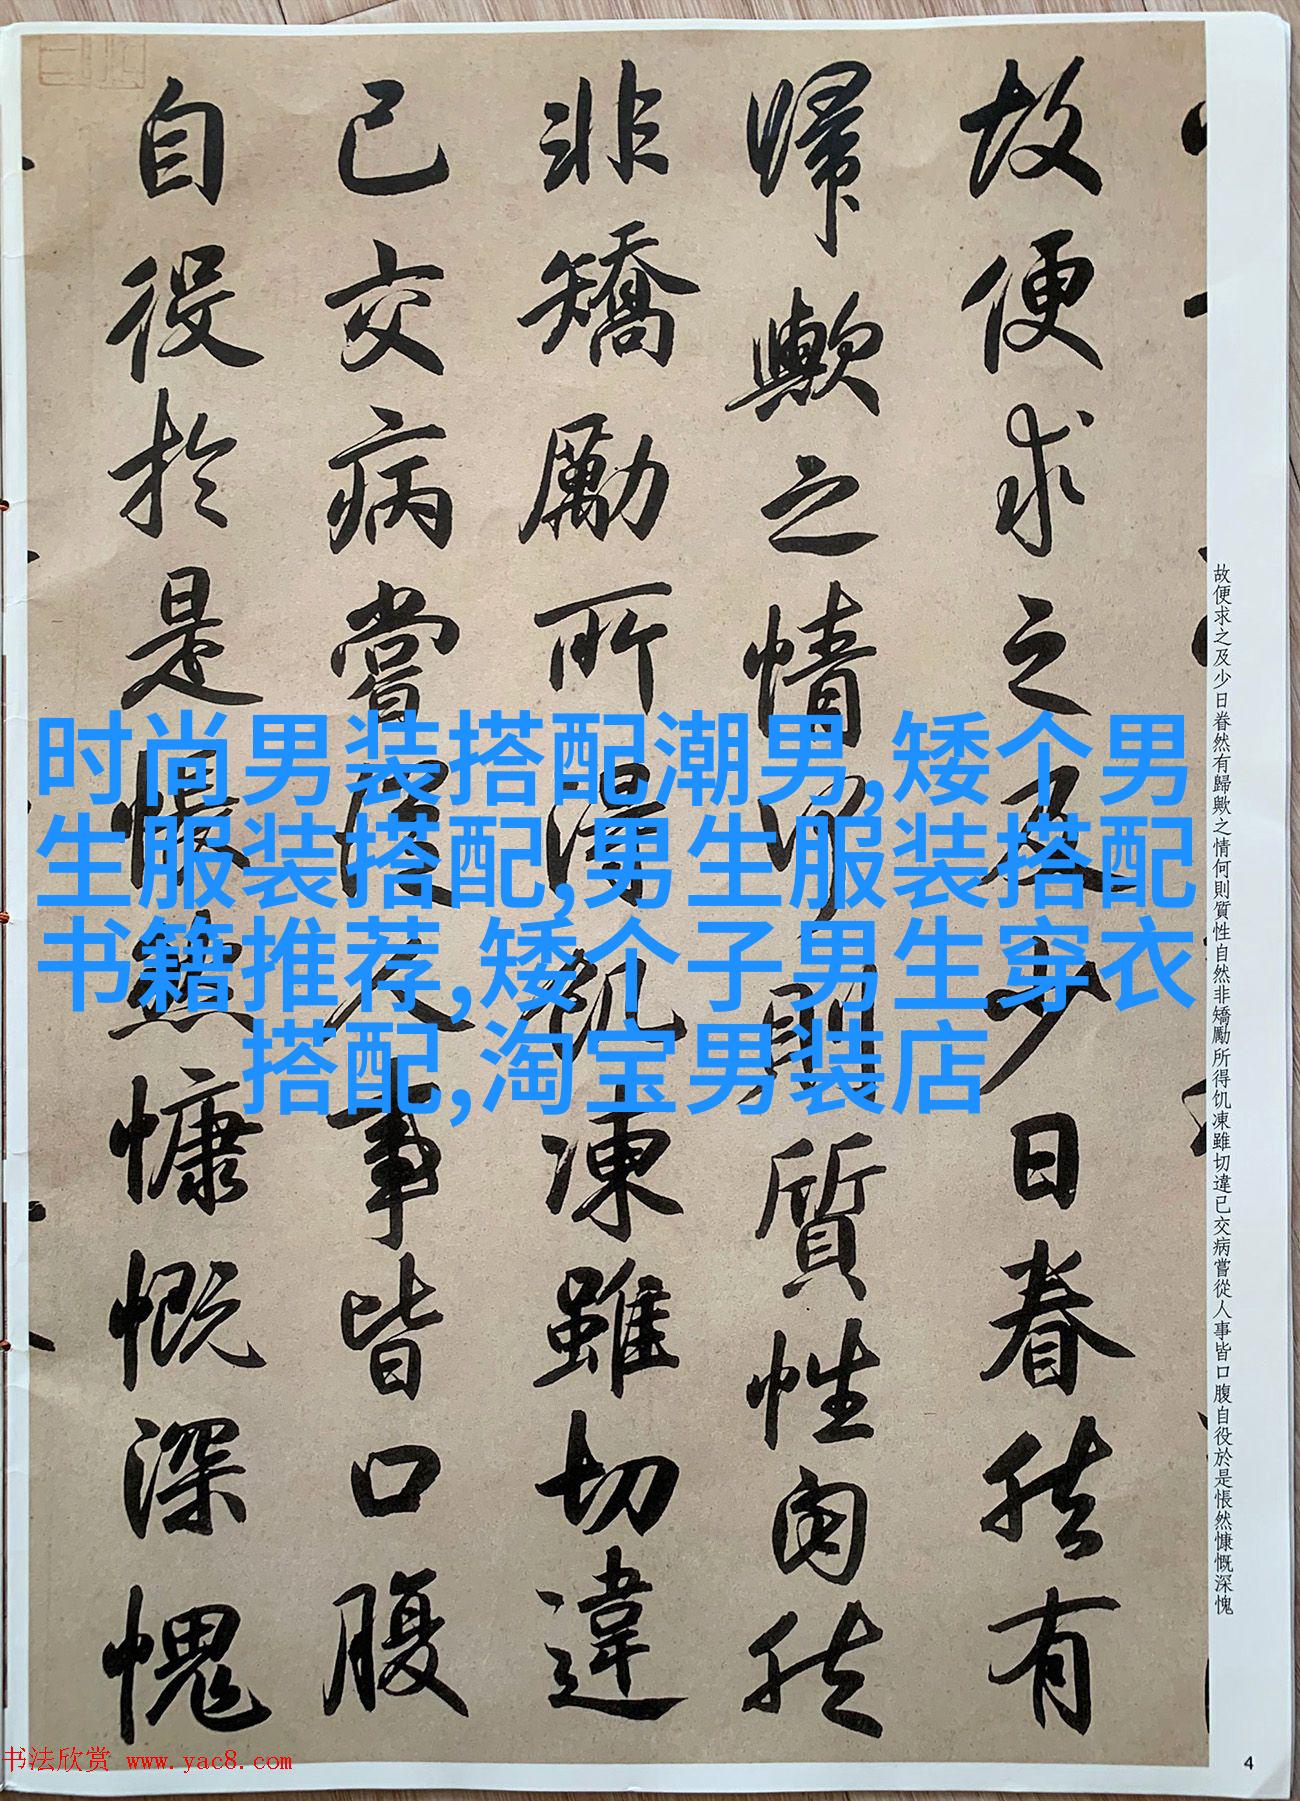 故便求之及少日眷然有歸歟之情何則質性自然非矯勵所得饥凍雖切違已交病嘗從人事皆口腹自役於是悵然慷慨深愧
故便求之及少日眷然有
歸歟之情何則質性自然
非矯勵所得飢凍雖切違
已交病嘗從人事皆口腹
自役於是悵然慷慨深愧
时尚男装搭配潮男,矮个男
生服装搭配,男生服装搭配
书籍推荐,矮个子男生穿衣
搭配,淘宝男装店
书法欣赏 www.yac8.com
4